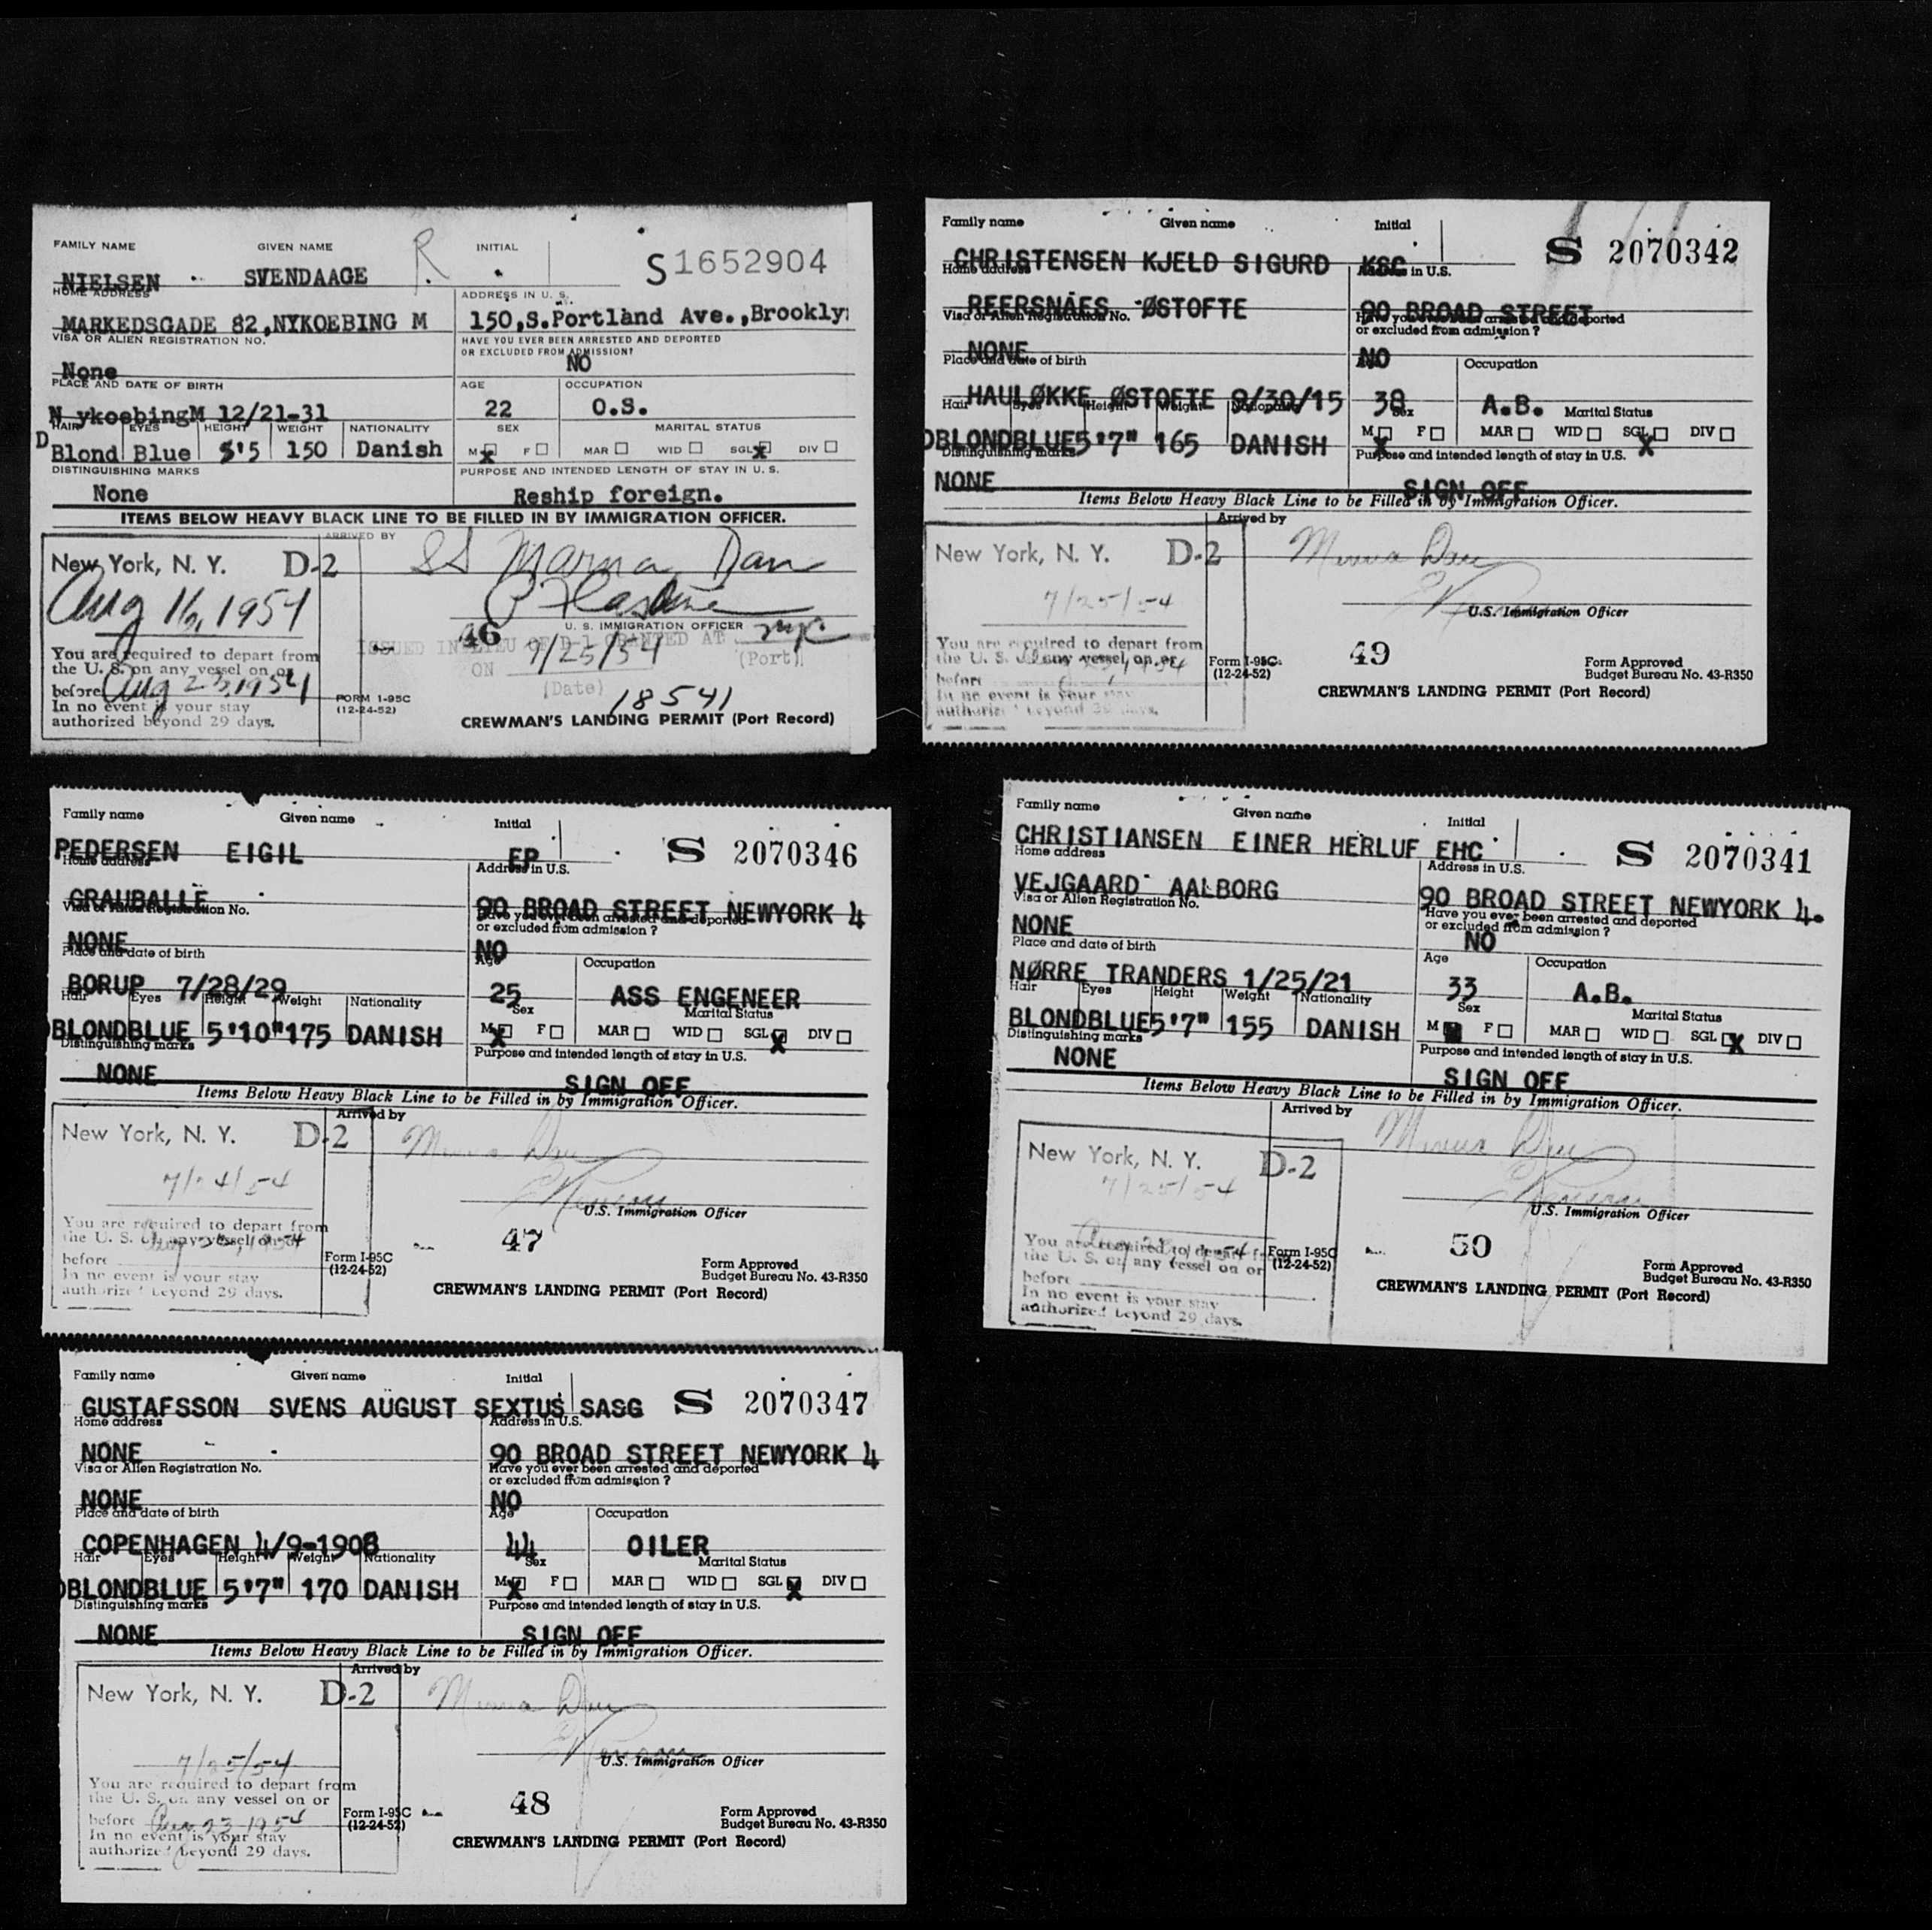 FAMILY NAME GIVEN NAME INITIAL
NIELSEN SVENDAAGE R S1652904
HOME ADDRESS ADDRESS IN U. S.
MARKEDSGADE 82,NYKOEBING M 150,S.Portland Ave.,Brookly
VISA OR ALIEN REGISTRATION NO. HAVE YOU EVER BEEN ARRESTED AND DEPORTED
OR EXCLUDED FROM ADMISSION?
None NO
PLACE AND DATE OF BIRTH AGE OCCUPATION
N ykoebingM 12/21-31 22 O.S.
HAIR EYES HEIGHT WEIGHT NATIONALITY SEX MARITAL STATUS
D Blond Blue 5'5 150 Danish M X F MAR WID SGL X DIV
DISTINGUISHING MARKS PURPOSE AND INTENDED LENGTH OF STAY IN U. S.
None Reship foreign.
ITEMS BELOW HEAVY BLACK LINE TO BE FILLED IN BY IMMIGRATION OFFICER.
ARRIVED BY
New York, N. Y. D-2 SS Marna Dan
Aug 16, 1954
U. S. IMMIGRATION OFFICER
46
ISSUED IN LIEU OF D-1 GRANTED AT nyc
(Port)
ON 7/25/54
(Date)
18541
You are required to depart from
the U. S. on any vessel on or
before Aug 23, 1954
In no event is your stay
authorized beyond 29 days.
FORM I-95C
(12-24-52)
CREWMAN'S LANDING PERMIT (Port Record)
Family name Given name Initial
CHRISTENSEN KJELD SIGURD KSC S 2070342
Home address Address in U.S.
REERSNÆS ØSTOFTE 90 BROAD STREET
Visa or Alien Registration No. Have you ever been arrested and deported
or excluded from admission?
NONE NO
Place and date of birth Occupation
HAULØKKE ØSTOFTE 9/30/15 38 A.B.
Hair Eyes Height Weight Nationality Sex Marital Status
DBLONDBLUE5'7" 165 DANISH M X F MAR WID SGL X DIV
Distinguishing marks Purpose and intended length of stay in U.S.
NONE SIGN OFF
Items Below Heavy Black Line to be Filled in by Immigration Officer.
Arrived by
New York, N. Y. D-2
7/25/54
U.S. Immigration Officer
You are required to depart from
the U. S. on any vessel on or
before
In no event is your stay
authorized beyond 29 days.
Form I-95C
(12-24-52)
49
Form Approved
Budget Bureau No. 43-R350
CREWMAN'S LANDING PERMIT (Port Record)
Family name Given name Initial
PEDERSEN EIGIL EP S 2070346
Home address Address in U.S.
GRAUBALLE 90 BROAD STREET NEWYORK 4
Visa or Alien Registration No. Have you ever been arrested and deported
or excluded from admission?
NONE NO
Place and date of birth Age Occupation
BORUP 7/28/29 25 ASS ENGENEER
Hair Eyes Height Weight Nationality Sex Marital Status
BLONDBLUE 5'10"175 DANISH M X F MAR WID SGL X DIV
Distinguishing marks Purpose and intended length of stay in U.S.
NONE SIGN OFF
Items Below Heavy Black Line to be Filled in by Immigration Officer.
Arrived by
New York, N. Y. D-2
7/24/54
U.S. Immigration Officer
You are required to depart from
the U. S. on any vessel on or
before
In no event is your stay
authorized beyond 29 days.
Form I-95C
(12-24-52)
47
Form Approved
Budget Bureau No. 43-R350
CREWMAN'S LANDING PERMIT (Port Record)
Family name Given name Initial
CHRISTIANSEN EINER HERLUF EHC S 2070341
Home address Address in U.S.
VEJGAARD AALBORG 90 BROAD STREET NEWYORK 4.
Visa or Alien Registration No. Have you ever been arrested and deported
or excluded from admission?
NONE NO
Place and date of birth Age Occupation
NØRRE TRANDERS 1/25/21 33 A.B.
Hair Eyes Height Weight Nationality Sex Marital Status
BLONDBLUE5'7" 155 DANISH M F MAR WID SGL X DIV
Distinguishing marks Purpose and intended length of stay in U.S.
NONE SIGN OFF
Items Below Heavy Black Line to be Filled in by Immigration Officer.
Arrived by
New York, N. Y. D-2
7/25/54
U.S. Immigration Officer
You are required to depart from
the U. S. on any vessel on or
before
In no event is your stay
authorized beyond 29 days.
Form I-95C
(12-24-52)
50
Form Approved
Budget Bureau No. 43-R350
CREWMAN'S LANDING PERMIT (Port Record)
Family name Given name Initial
GUSTAFSSON SVENS AUGUST SEXTUS SASG S 2070347
Home address Address in U.S.
NONE 90 BROAD STREET NEWYORK 4
Visa or Alien Registration No. Have you ever been arrested and deported
or excluded from admission?
NONE NO
Place and date of birth Age Occupation
COPENHAGEN 4/9-1908 44 OILER
Hair Eyes Height Weight Nationality Sex Marital Status
DBLONDBLUE 5'7" 170 DANISH M X F MAR WID SGL X DIV
Distinguishing marks Purpose and intended length of stay in U.S.
NONE SIGN OFF
Items Below Heavy Black Line to be Filled in by Immigration Officer.
Arrived by
New York, N. Y. D-2
7/25/54
U.S. Immigration Officer
You are required to depart from
the U. S. on any vessel on or
before Aug 23, 1954
In no event is your stay
authorized beyond 29 days.
Form I-95C
(12-24-52)
48
Form Approved
Budget Bureau No. 43-R350
CREWMAN'S LANDING PERMIT (Port Record)